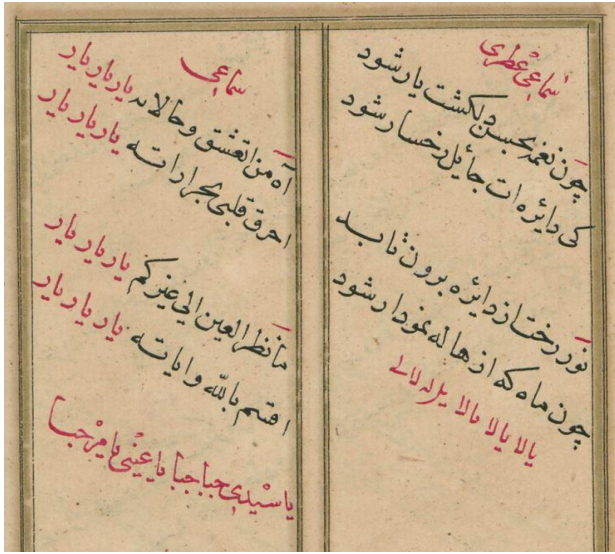 سماعئ عطری
چون نغمه بحسن دلکشت یار شود
کی دائره ات حائل رخسار شود
نور رخت از دائره برون تابد
چون ماه که از هاله نمودار شود
یالا یالا یالا یلا لالی
سماعی
آه من العشق وحالاته یار یار یار
احرق قلبی بحراراته یار یار یار
ما نظر العین الی غیرکم یار یار یار
اقسم بالله وایاته یار یار یار
یا سیدی جبا جبا یا عینی یا مرحبا